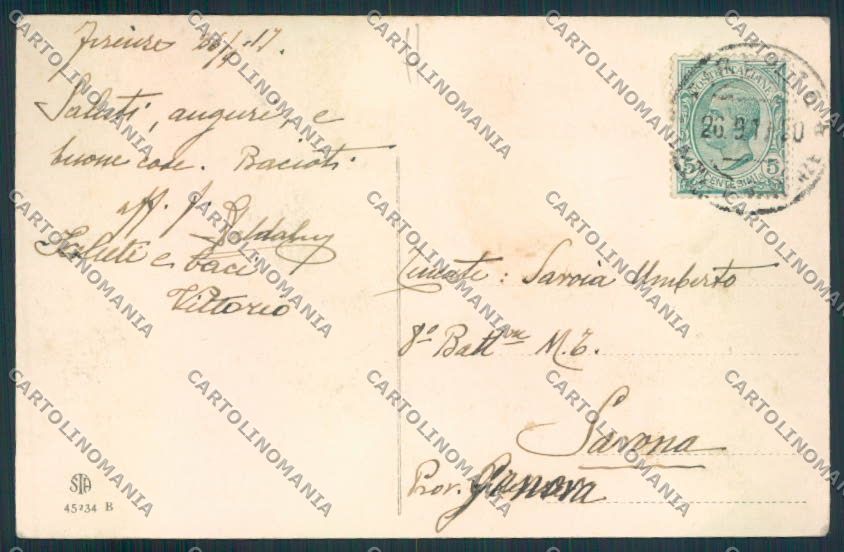 Firenze 26/9-17.
Saluti, auguri, e
buone cose. Bacioti.
aff. f.
Saluti e baci
Vittorio
Tenente: Savoia Umberto
8º Battne M.T.
Savona
Prov. Genova
POSTE ITALIANE
26.9.17
5 5
CENTESIMI
STA
45234 B
CARTOLINOMANIA